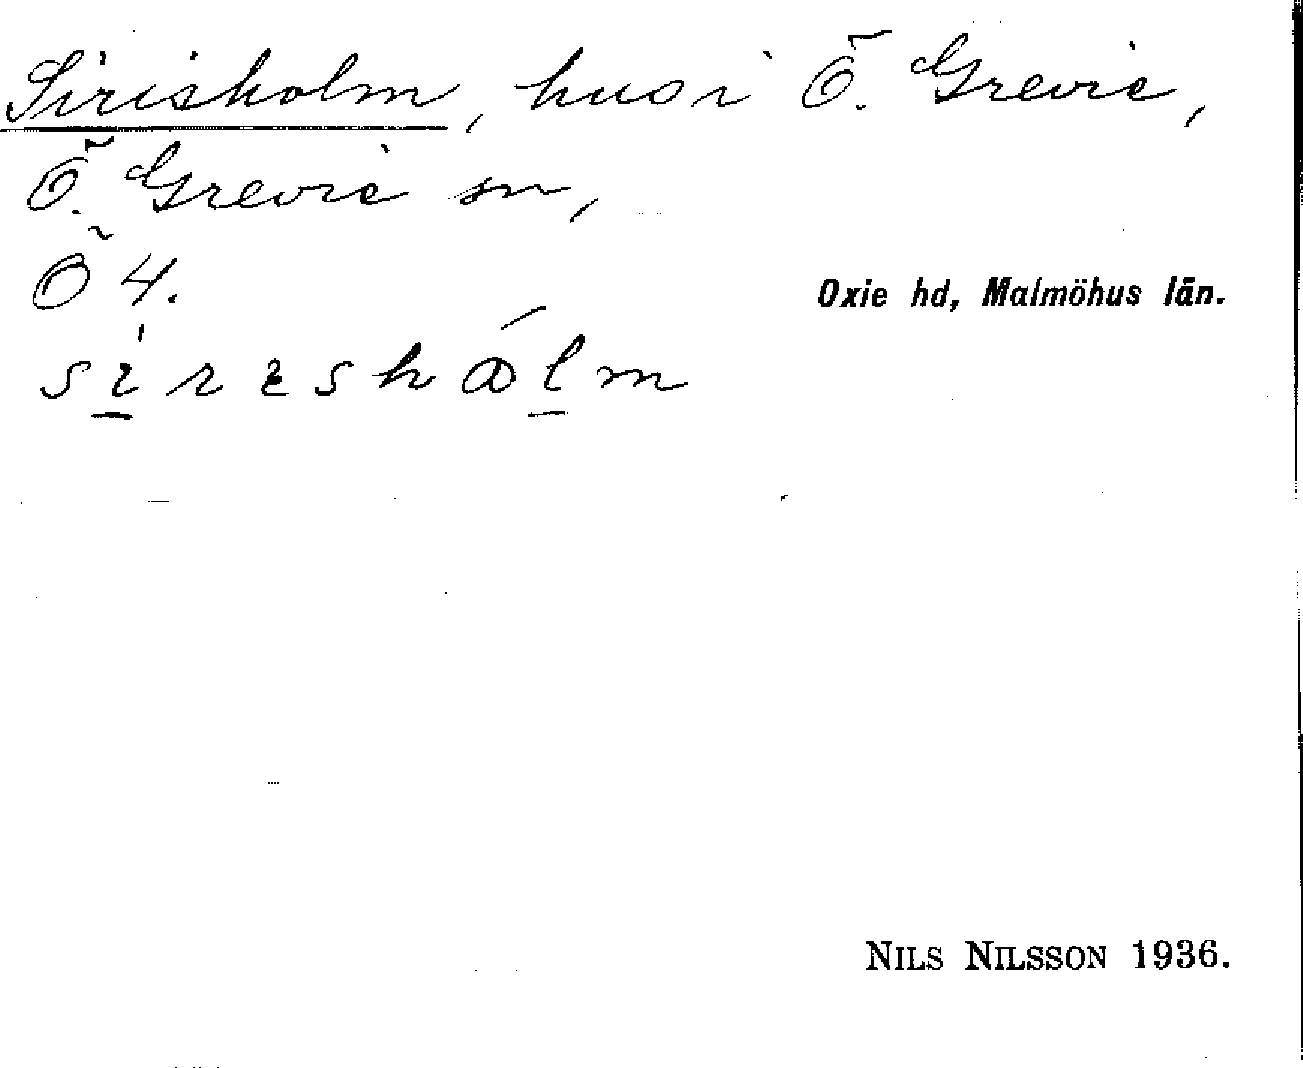 Sirisholm, hus i Ö. Grevie,
Ö. Grevie sn,
Ö 4.
Oxie hd, Malmöhus län.
NILS NILSSON 1936.